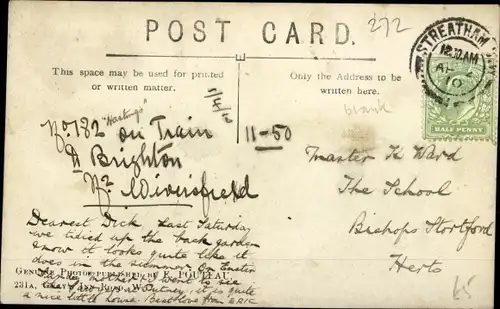 272
POST CARD.
This space may be used for printed
or written matter.
Only the Address to be
written here.
STREATHAM
12.30AM
10
HALF PENNY
blank
1/4/10
No 132 "Hastings"
on Train
11-50
Nr Brighton
Nr Wivelsfield
Master K Ward
The School
Bishops Stortford
Herts
Dearest Dick Last Saturday
we tidied up the back garden
now it looks quite like it
does in the summer. On Easter
mother & went to see
at Putney, it is quite
a nice little house. Best love from ERIC
GENUINE PHOTO PUBLISHED BY F. POUTEAU.
231A, GRAY'S INN ROAD, W.C.
65